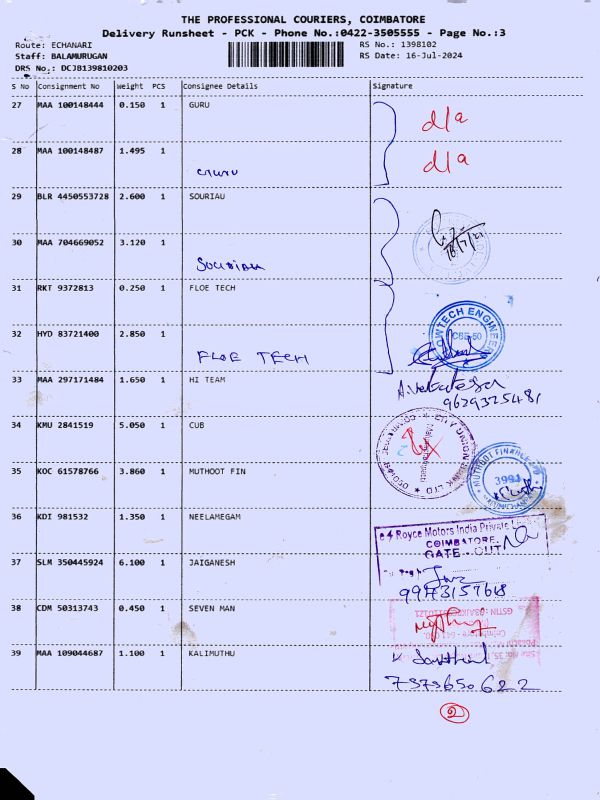 THE PROFESSIONAL COURIERS, COIMBATORE
Delivery Runsheet - PCK - Phone No.:0422-3505555 - Page No.:3
Route: ECHANARI
RS No.: 1398102
Staff: BALAMURUGAN
RS Date: 16-Jul-2024
DRS No.: DCJB139810203
S No Consignment No Weight PCS Consignee Details Signature
27 MAA 100148444 0.150 1 GURU
d/a
28 MAA 100148487 1.495 1
d/a
Guru
29 BLR 4450553728 2.600 1 SOURIAU
30 MAA 704669052 3.120 1
SOURIAU
31 RKT 9372813 0.250 1 FLOE TECH
32 HYD 83721400 2.850 1
FLOE TECH
33 MAA 297171484 1.650 1 HI TEAM
9629325481
34 KMU 2841519 5.050 1 CUB
CITY UNION BANK LTD
35 KOC 61578766 3.860 1 MUTHOOT FIN
MUTHOOT FINANCE
3994
36 KDI 981532 1.350 1 NEELAMEGAM
Royce Motors India Private
COIMBATORE.
GATE - OUT
37 SLM 350445924 6.100 1 JAIGANESH
9943157668
38 CDM 50313743 0.450 1 SEVEN MAN
39 MAA 109044687 1.100 1 KALIMUTHU
7373650622
2